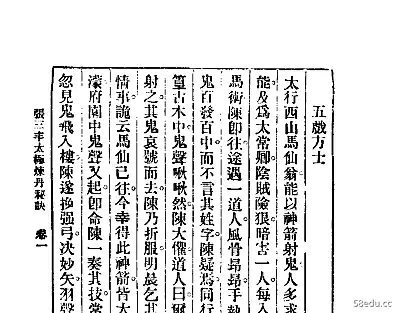 五戲方士
太行西山馬仙翁能以神箭射鬼人多求
能及爲太常卿陰賊險狠暗害一人每入
馬衛陳卽往途遇一道人風骨昻昻手執
鬼百發百中而不言其姓字陳疑焉同行
篁古木中鬼聲啾啾然陳大懼道人曰
射之其鬼哀號而去陳乃折服明晨乞其
情事詭云馬仙已往今幸得此神箭皆大
濠府園中鬼聲又起卽命陳一奏其技
忽見鬼飛入樓陳遂換强弓决妙矢羽聲
張三丰太極煉丹秘訣 卷一
58edu.cc